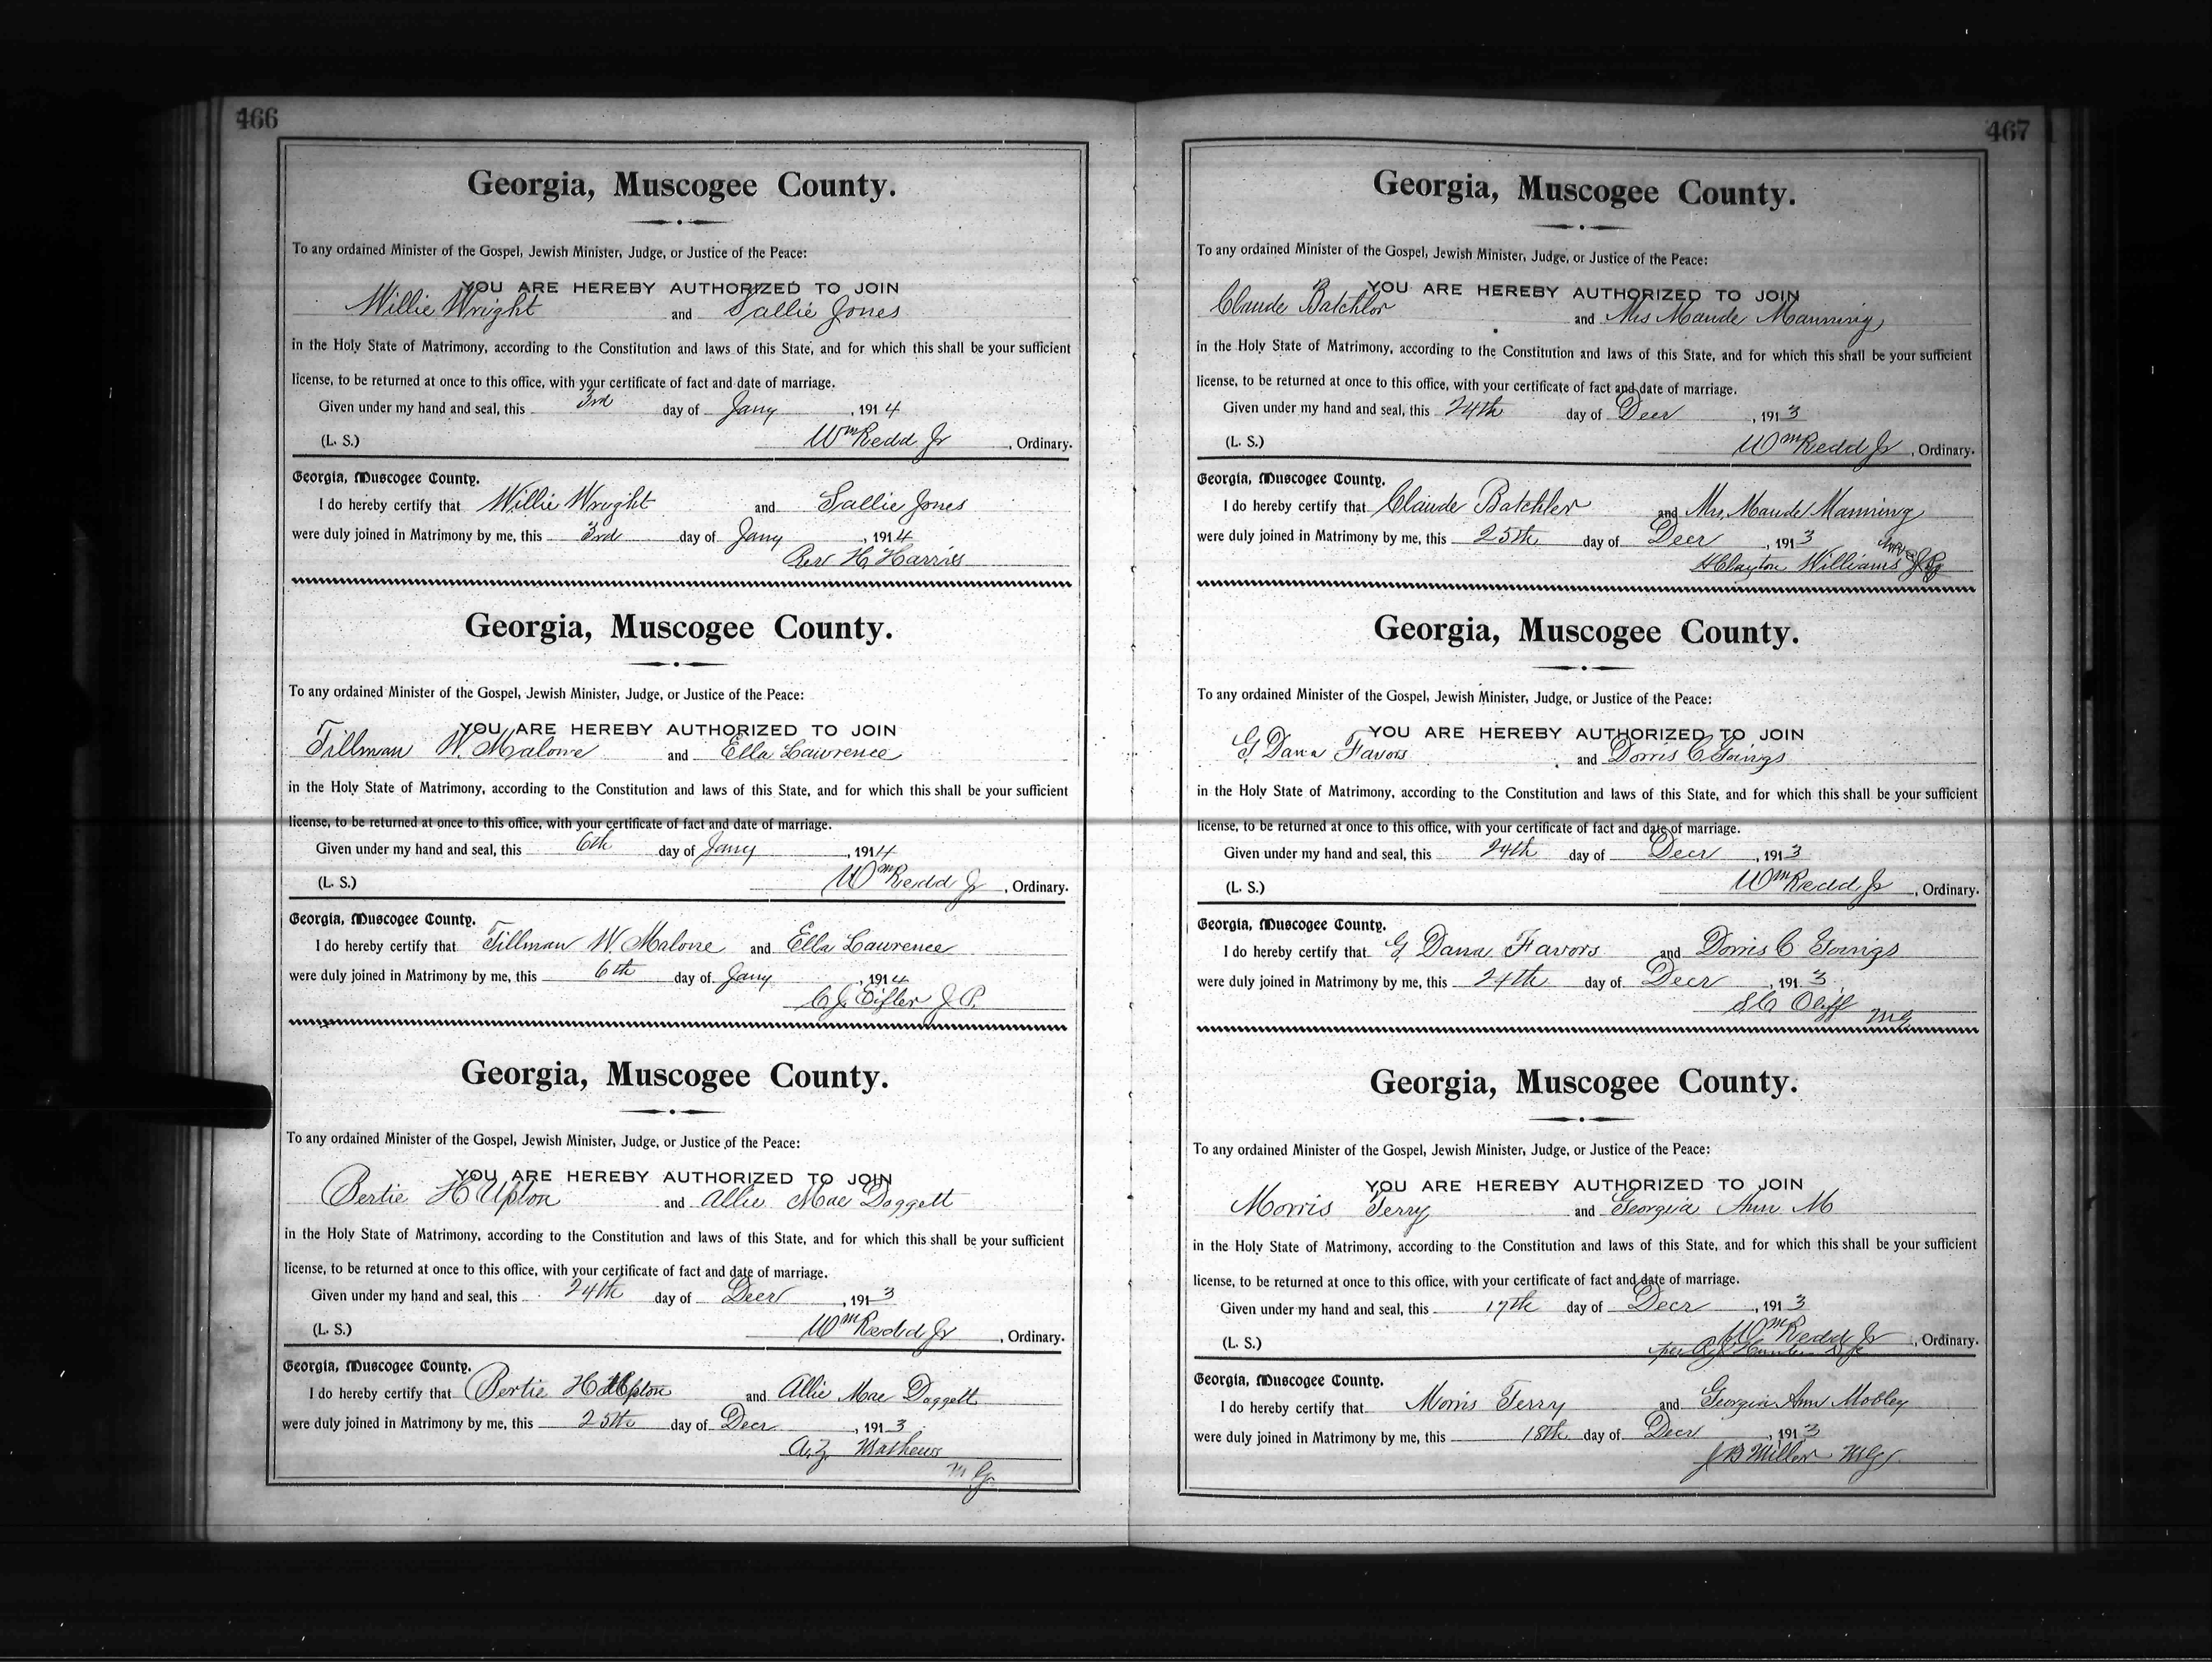 466
Georgia, Muscogee County.
To any ordained Minister of the Gospel, Jewish Minister, Judge, or Justice of the Peace:
YOU ARE HEREBY AUTHORIZED TO JOIN
Willie Wright and Sallie Jones
in the Holy State of Matrimony, according to the Constitution and laws of this State, and for which this shall be your sufficient
license, to be returned at once to this office, with your certificate of fact and date of marriage.
Given under my hand and seal, this 3rd day of Jany, 1914
(L. S.) Wm Redd Jr, Ordinary.
Georgia, Muscogee County.
I do hereby certify that Willie Wright and Sallie Jones
were duly joined in Matrimony by me, this 3rd day of Jany, 1914
Rev H. Harris
Georgia, Muscogee County.
To any ordained Minister of the Gospel, Jewish Minister, Judge, or Justice of the Peace:
YOU ARE HEREBY AUTHORIZED TO JOIN
Tillman W. Malone and Ella Lawrence
in the Holy State of Matrimony, according to the Constitution and laws of this State, and for which this shall be your sufficient
license, to be returned at once to this office, with your certificate of fact and date of marriage.
Given under my hand and seal, this 6th day of Jany, 1914
(L. S.) Wm Redd Jr, Ordinary.
Georgia, Muscogee County.
I do hereby certify that Tillman W. Malone and Ella Lawrence
were duly joined in Matrimony by me, this 6th day of Jany, 1914
C. J. Eifler J. P.
Georgia, Muscogee County.
To any ordained Minister of the Gospel, Jewish Minister, Judge, or Justice of the Peace:
YOU ARE HEREBY AUTHORIZED TO JOIN
Bertie H Upton and Allie Mae Doggett
in the Holy State of Matrimony, according to the Constitution and laws of this State, and for which this shall be your sufficient
license, to be returned at once to this office, with your certificate of fact and date of marriage.
Given under my hand and seal, this 24th day of Decr, 1913
(L. S.) Wm Redd Jr, Ordinary.
Georgia, Muscogee County.
I do hereby certify that Bertie H Upton and Allie Mae Doggett
were duly joined in Matrimony by me, this 25th day of Decr, 1913
A. Z. Mathews
M G
467
Georgia, Muscogee County.
To any ordained Minister of the Gospel, Jewish Minister, Judge, or Justice of the Peace:
YOU ARE HEREBY AUTHORIZED TO JOIN
Claude Batchlor and Mrs Maude Manning
in the Holy State of Matrimony, according to the Constitution and laws of this State, and for which this shall be your sufficient
license, to be returned at once to this office, with your certificate of fact and date of marriage.
Given under my hand and seal, this 24th day of Decr, 1913
(L. S.) Wm Redd Jr, Ordinary.
Georgia, Muscogee County.
I do hereby certify that Claude Batchler and Mrs Maude Manning
were duly joined in Matrimony by me, this 25th day of Decr, 1913
H Clayton Williams
Georgia, Muscogee County.
To any ordained Minister of the Gospel, Jewish Minister, Judge, or Justice of the Peace:
YOU ARE HEREBY AUTHORIZED TO JOIN
G Dana Favors and Dorris C
in the Holy State of Matrimony, according to the Constitution and laws of this State, and for which this shall be your sufficient
license, to be returned at once to this office, with your certificate of fact and date of marriage.
Given under my hand and seal, this 24th day of Decr, 1913
(L. S.) Wm Redd Jr, Ordinary.
Georgia, Muscogee County.
I do hereby certify that G Dana Favors and Dorris C
were duly joined in Matrimony by me, this 24th day of Decr, 1913
S C Oliff MG
Georgia, Muscogee County.
To any ordained Minister of the Gospel, Jewish Minister, Judge, or Justice of the Peace:
YOU ARE HEREBY AUTHORIZED TO JOIN
Morris Terry and Georgia Ann M
in the Holy State of Matrimony, according to the Constitution and laws of this State, and for which this shall be your sufficient
license, to be returned at once to this office, with your certificate of fact and date of marriage.
Given under my hand and seal, this 17th day of Decr, 1913
(L. S.) Wm Redd Jr, Ordinary.
per
Georgia, Muscogee County.
I do hereby certify that Morris Terry and Georgia Ann Mobley
were duly joined in Matrimony by me, this 18th day of Decr, 1913
J B Miller MG